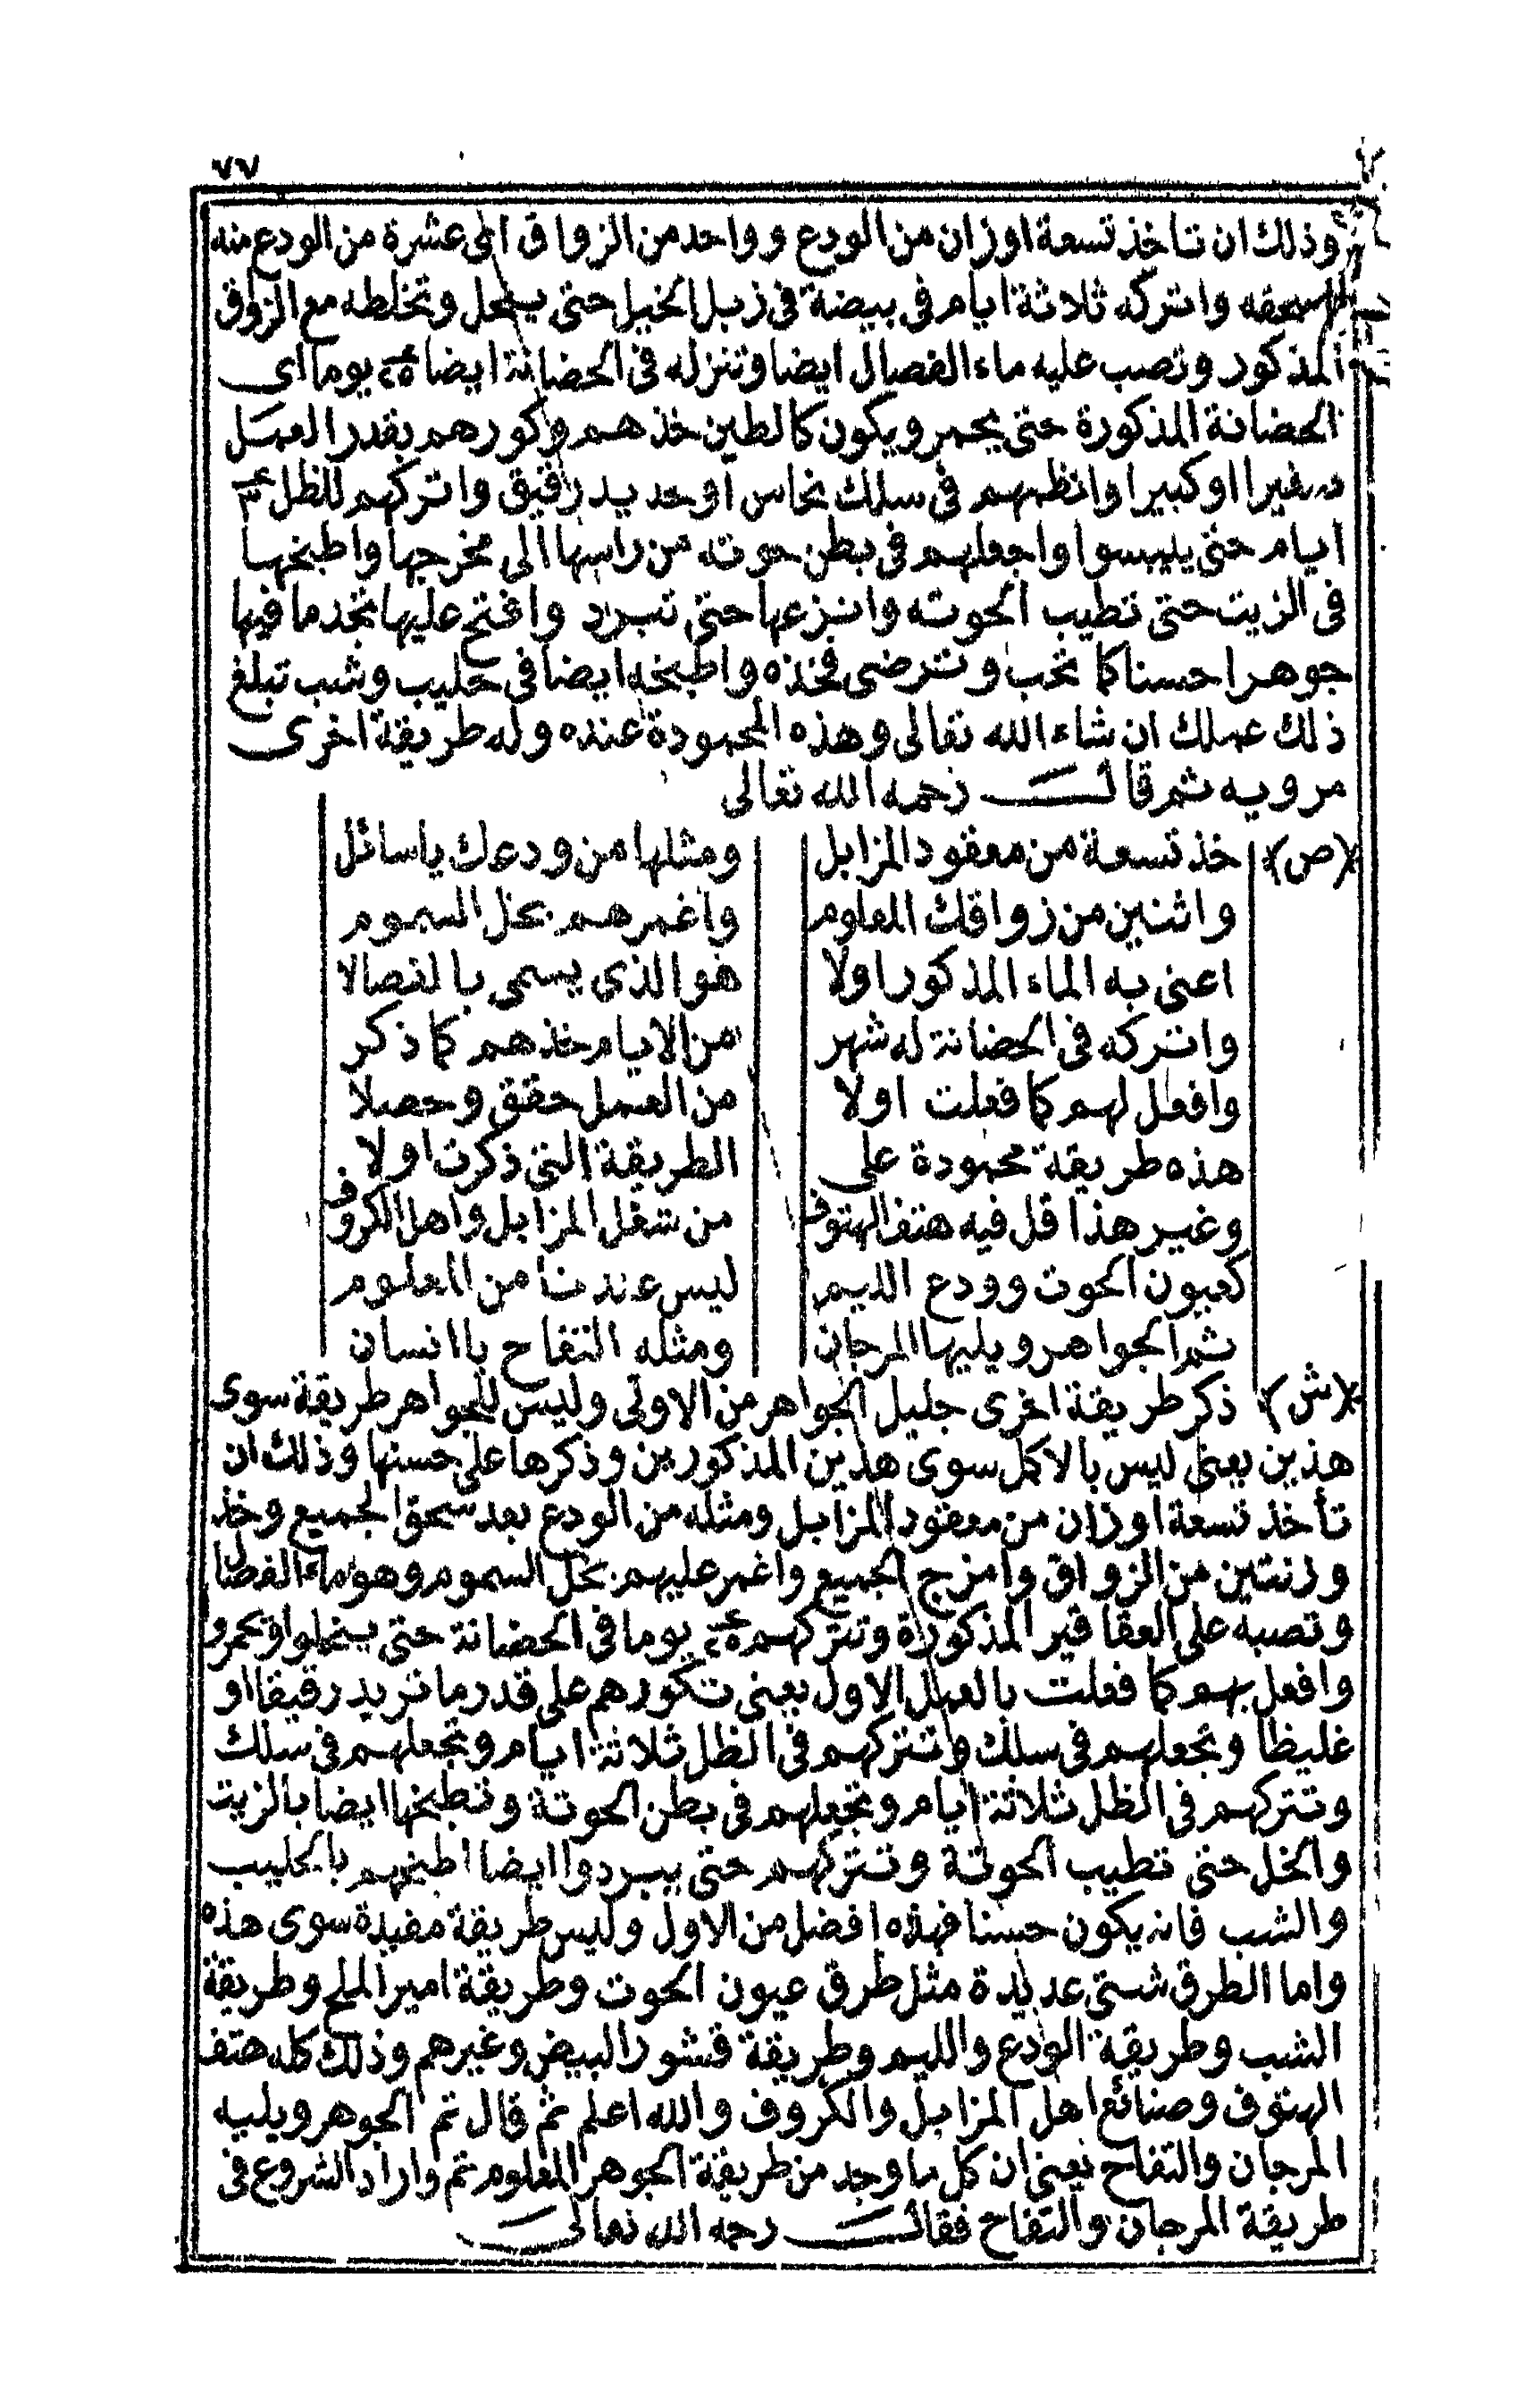 ٧٧
وذلك ان تاخذ تسعة اوزان من الودع وواحد من الزواق الى عشرة من الودع منه
اسحقه واتركه ثلاثة ايام فى بيضة فى زبل الخيل حتى ينحل وتخلطه مع الزواق
المذكور وتصب عليه ماء الفصال ايضا وتنزله فى الحضانة ايضا يوما اى
الحضانة المذكورة حتى يحمر ويكون كالطين خذهم وكورهم بقدر العمل
صغيرا اوكبيرا وانظمهم فى سلك نحاس اوحديد رقيق واتركهم للظل
ايام حتى ييبسوا واجعلهم فى بطن حوته من راسها الى مخرجها واطبخها
فى الزيت حتى تطيب الحوته وانزعها حتى تبرد وافتح عليها تجد ما فيها
جوهرا حسنا كما تحب وترضى فخذه واطبخه ايضا فى حليب وشب تبلغ
ذلك عملك ان شاء الله تعالى وهذه المحمودة عنده وله طريقة اخرى
مرويه ثم قال رحمه الله تعالى
(ص) خذ تسعة من معقود المزابل ومثلها من ودعك ياسائل
واثنين من زواقك المعلوم واغمرهم بخل السموم
اعنى به الماء المذكور اولا هو الذى يسمى بالفصالا
واتركه فى الحضانة له شهر من الايام خذهم كما ذكر
وافعل لهم كما فعلت اولا من العمل حقق وحصلا
هذه طريقة محمودة على الطريقة التى ذكرت اولا
وغير هذا قل فيه هتف الهتوف من شغل المزابل واهل الكروف
كعيون الحوت وودع الليم ليس عندنا من المعلوم
ثم الجواهر ويليها المرجان ومثله التفاح ياانسان
(ش) ذكر طريقة اخرى جليل الجواهر من الاولى وليس للجواهر طريقة سوى
هذين يعنى ليس بالاكمل سوى هذين المذكورين وذكرها على حسنها وذلك ان
تأخذ تسعة اوزان من معقود المزابل ومثله من الودع بعد سحق الجميع وخذ
وزنتين من الزواق وامزج الجميع واغمر عليهم بخل السموم وهو ماء الفصال
وتصبه على العقاقير المذكورة وتتركهم يوما فى الحضانة حتى ينحلوا ويحمرو
وافعل بهم كما فعلت بالعمل الاول يعنى تكورهم على قدر ما تريد رقيقا او
غليظا وتجعلهم فى سلك وتتركهم فى الظل ثلاثة ايام وتجعلهم فى سلك
وتتركهم فى الظل ثلاثة ايام وتجعلهم فى بطن الحوتة وتطبخها ايضا بالزيت
والخل حتى تطيب الحوتة وتتركهم حتى يبردوا ايضا اطبخهم بالحليب
والشب فانه يكون حسنا فهذه افضل من الاول وليس طريقة مفيدة سوى هذه
واما الطرق شتى عديدة مثل طرق عيون الحوت وطريقة امير الملح وطريقة
الشب وطريقة الودع والليم وطريقة قشور البيض وغيرهم وذلك كله هتف
الهتوف وصنائع اهل المزابل والكروف والله اعلم ثم قال تم الجوهر ويليه
المرجان والتفاح يعنى ان كل ما وجد من طريقة الجوهر المعلوم تم واراد الشروع فى
طريقة المرجان والتفاح فقال رحمه الله تعالى